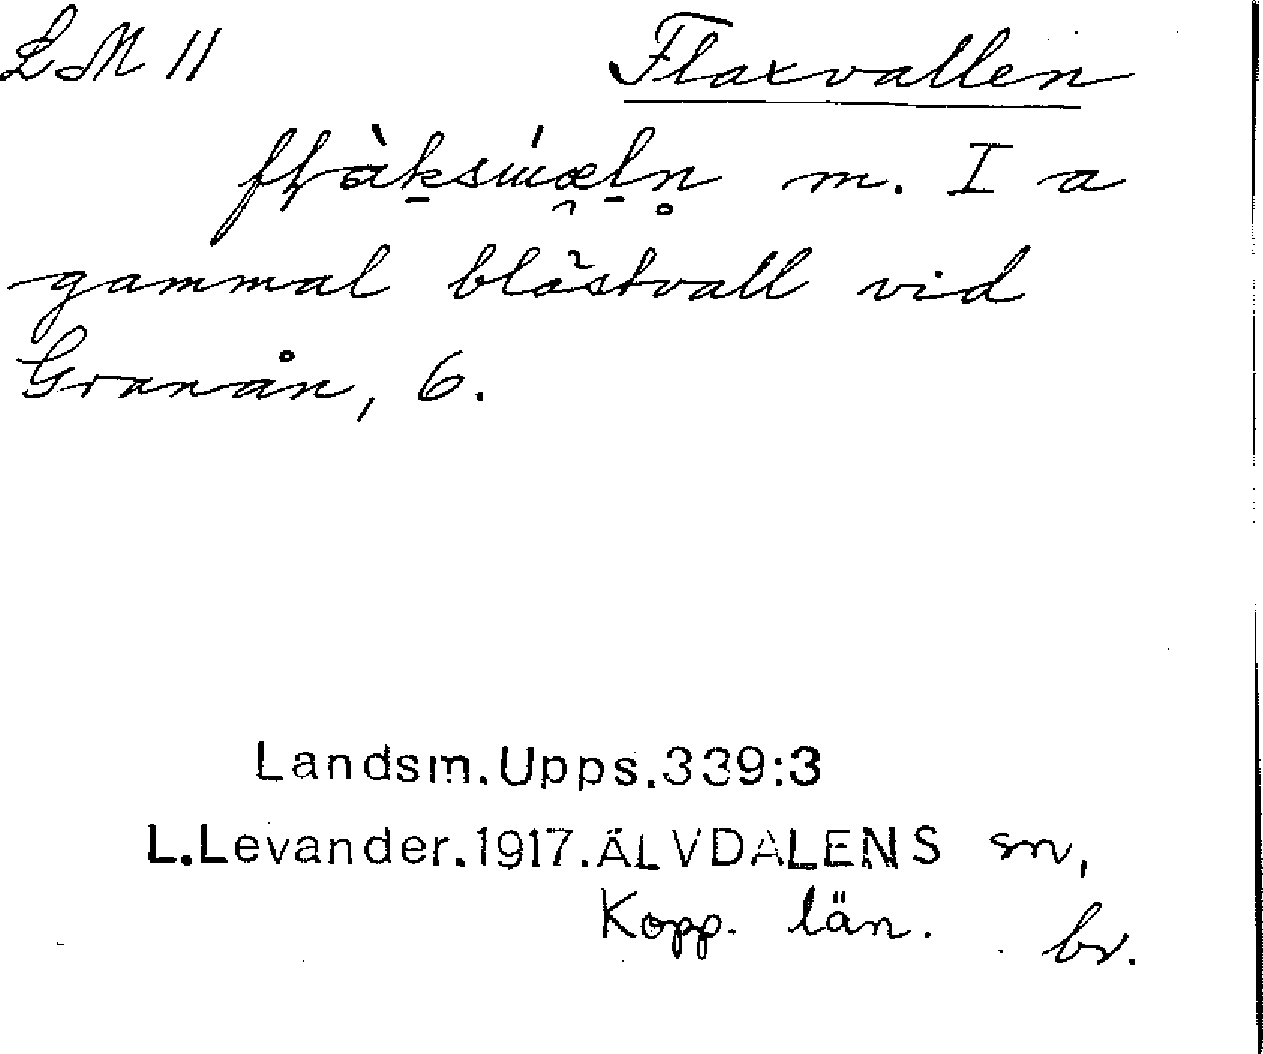 LM 11 Flaxvallen
m. I a
gammal blästvall vid
Granån, 6.
Landsm.Upps.339:3
L.Levander.1917.ÄLVDALENS sn,
Kopp. län. br.